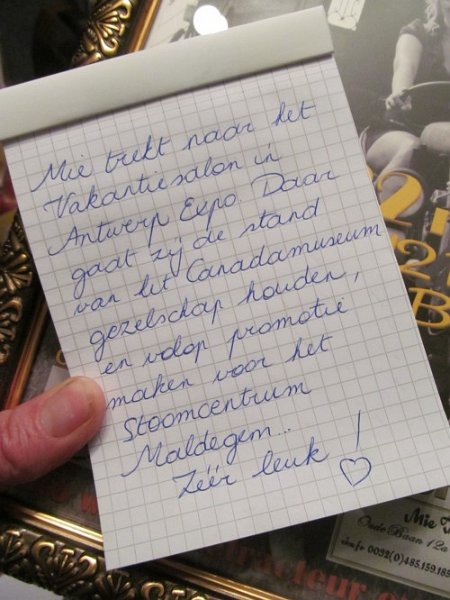 Mie trekt naar het
Vakantiesalon in
Antwerp Expo. Daar
gaat zij de stand
van het Canadamuseum
gezelschap houden,
en volop promotie
maken voor het
Stoomcentrum
Maldegem..
Zéér leuk !
♡
Mie
Oude Baan 12a
info 0032(0)485.159.185